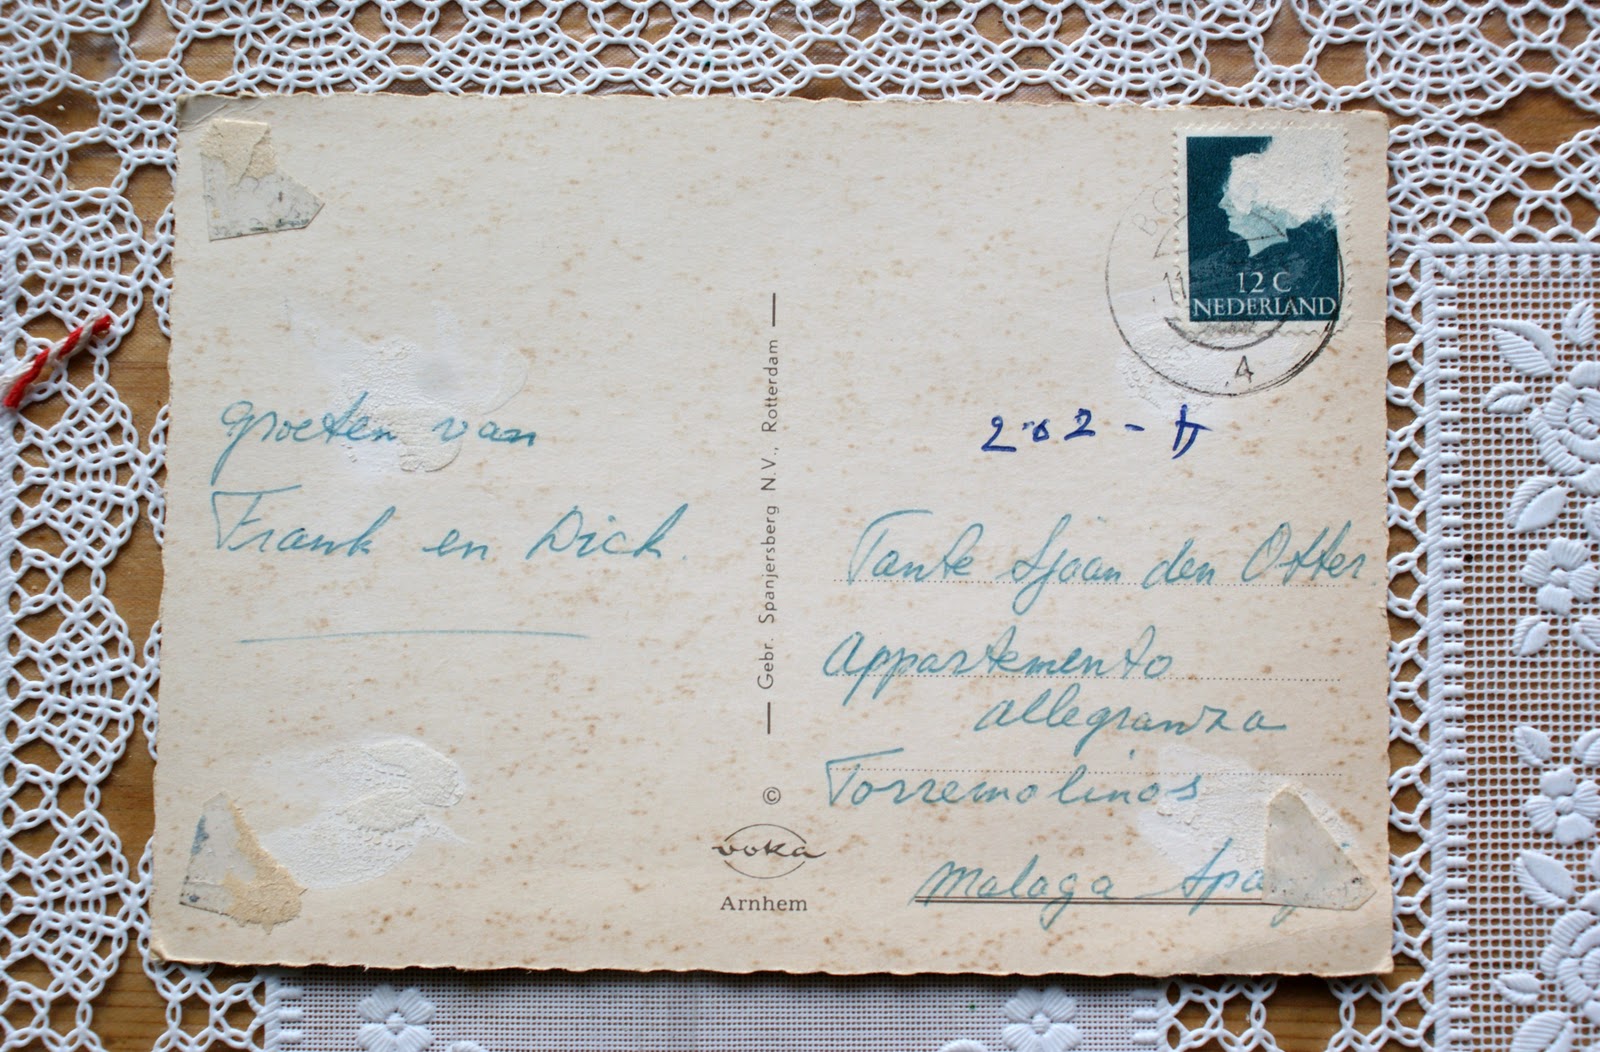 groeten van
Frank en Dick.
Gebr. Spanjersberg N.V., Rotterdam
©
voka
Arnhem
12 C
NEDERLAND
11
4
Tante Sjaan den Otter
Appartemento
allegranza
Torremolinos
Malaga